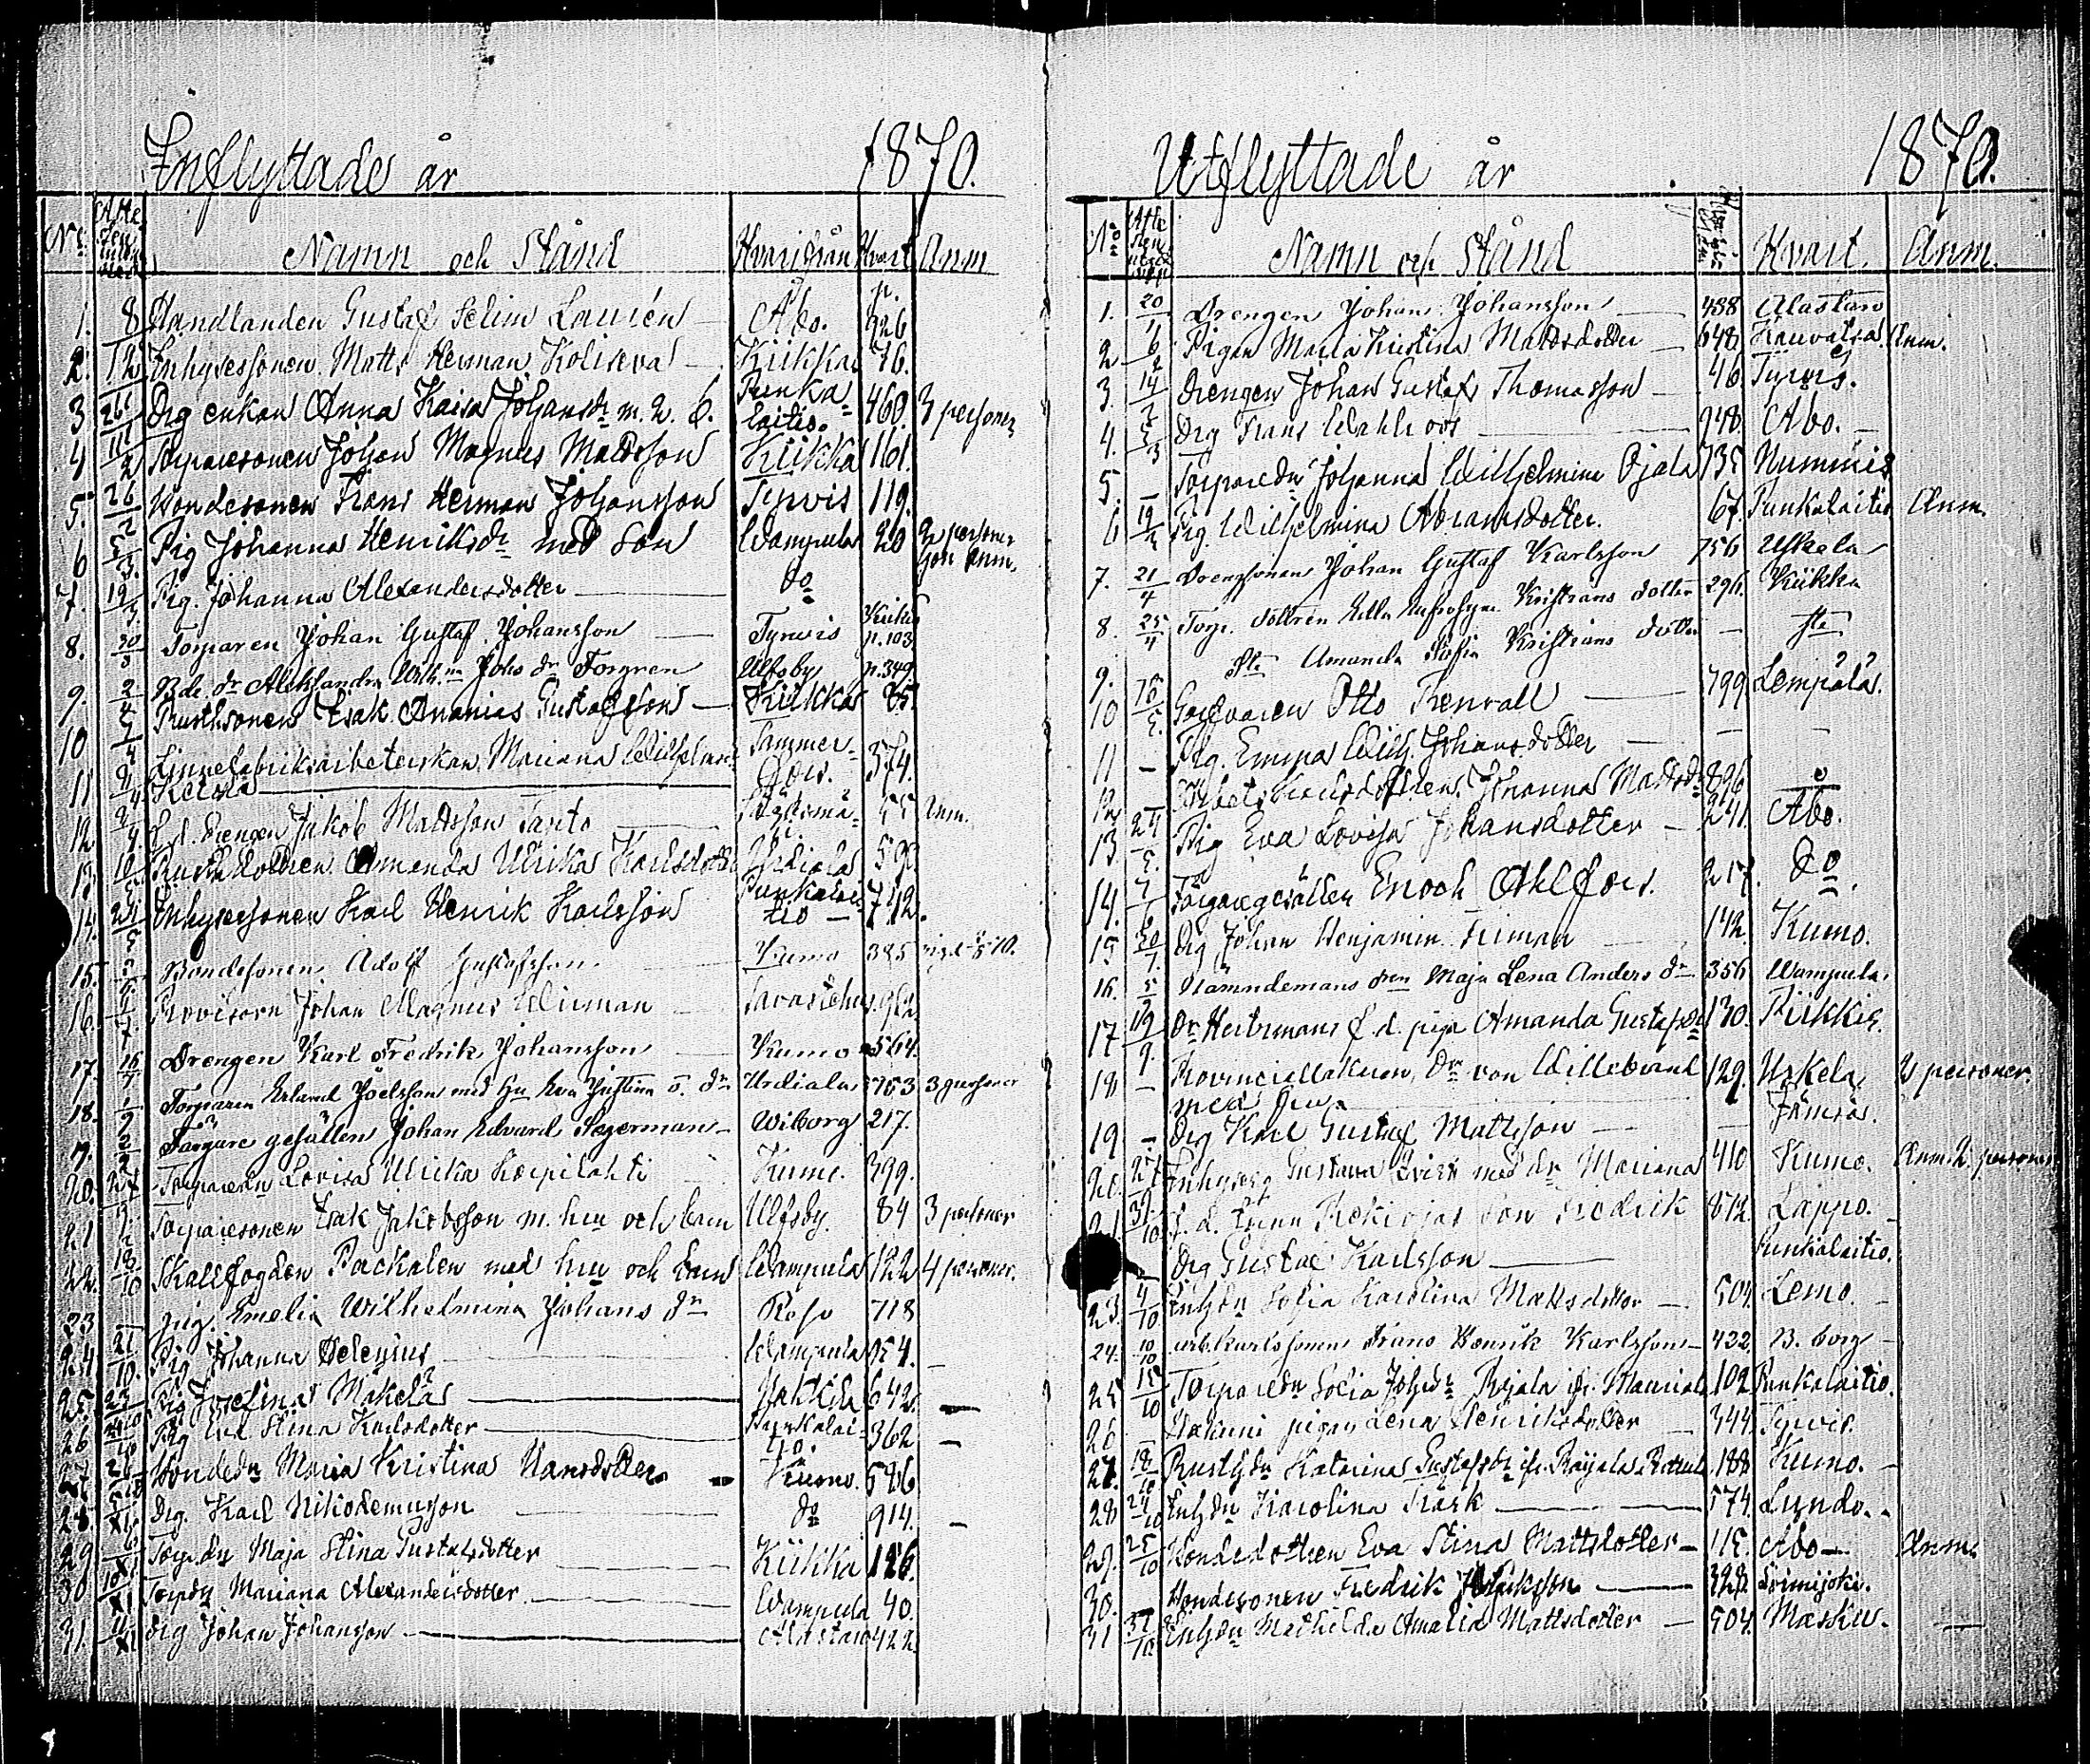 Inflyttade år 1870.
No Namn och Stånd Hvarifrån Hvart Anm
1. 8 Handlanden Gustaf Selim Laurén Åbo. p. 926
2. 12 Inhysessonen Matts Herman Koliseva Kiikka 76.
3 26 Drg enkan Anna Kaisa Johansdr m. 2. b. Punkalaitio. 460. 3 personer
4 11/2 Torparesonen Johan Magnus Mattsson Kiikka 161.
5. 26/2 Bondesonen Frans Herman Johansson Tyrvis 119.
6 5/3. Pig Johanna Henriksdr med Son Wampula 20 2 personer
7. 19/3 Pig. Johanna Alexandersdotter do
8. 30/3 Torparen Johan Gustaf Johansson Tyrvis p. 103
9. 2/4 Bde. dr Aleksandra Wilh.na Johs dr Torgren Ulfsby p. 349.
10 Rusthsonen Isak Ananias Gustafsson Kiikka 85.
11 9/4 Linnefabriksarbeterskan Mariana Wilhelmina Tammerfors. 374.
12 9/4 F. d. drengen Jakob Mattsson Santo 55 Anm.
13. Rusth dottren Amanda Ulrika Karlsdotter Urdiala 590.
14. 24/5 Inhysessonen Karl Henrik Karlsson Punkalaitio 712.
15. Bondesonen Adolf Gustafsson Kumo 385
16. Provisorn Johan Magnus Widman Tavastehus 962
17. 16/7 Drengen Karl Fredrik Johansson Kumo 564.
18. 1/9 Torparen Erland Joelsson med hu Eva Justina o. dr Urdiala 753 3 personer
Färgare gesällen Johan Edvard Hagerman Wiborg 217.
20. 27 Torparedn Lovisa Ulrika Korpilahti Kumo. 399.
21 Torparesonen Isak Jakobsson m. hu och barn Ulfsby. 84 3 personer
22. 18/10 Skallfogden Packalen med hu och barn Wampula 122 4 personer.
23 Pig. Emelia Wilhelmina Johans dr Reso 718
24 21/10. Pig Johanna Helenius Wampula 954.
25. 23 Pig Josefina Mäkelä 642
26 24/10 Pig Eva Stina Karlsdotter Punkalaitio. 362
27 Bondedn Maria Kristina Hansdotter Kumo. 586
28. 5/XI Drg. Karl Nikodemusson do 914.
29 6/XI Torp.dn Maja Stina Gustafsdotter Kiikka 126.
30 10/XI Torpdn Mariana Alexandersdotter Wampula 40.
31. 11/XI Drg Johan Johansson Alastaro 422.
Utflyttade år 1870.
No Namn och Stånd Hvart. Anm.
1. 20/1 Drengen Johan Johansson 438 Alastaro
2 6/2 Pigan Maria Kristina Mattsdotter 648 Kauvatsa. Anm.
3. 14/2 Drengen Johan Gustaf Thomasson 46. Tyrvis.
4. 3/3 Drg Frans Wahlroos 948. Åbo.
5. – Torparedn Johanna Wilhelmina Ojala 735 Nummis
6 19/4 Pig. Wilhelmina Abramsdotter. 67. Punkalaitio Anm.
7. 21/4 Drengsonen Johan Gustaf Karlsson 756 Uskela
8. 25/4 Torp. dottren Ulla Eufrosyne Kristians dotter 296. Kiikka
9. Dto Amanda Sofia Kristians dotter – Dto
10 16/5. Garfvaren Otto Renvall 799 Lempälä.
11 – Pig. Emma Wilh. Johansdotter – –
12 Johanna Mattsdr 896
13 24/5. Pig Eva Lovisa Johansdotter 241. Åbo.
14. 7/6 Färgaregesällen Enoch Ahlfors. 217. do.
15 20/7. Drg Johan Benjamin Friman 142. Kumo.
16. 5 Nämndemans dren Maja Lena Anders dr 356 Wampula.
17 19/9. Dr Heitzmans f. d. piga Amanda Gustafsdr 130. Piikkis.
18 – Provinciallakaren, Dr von Willebrand med fru 129. Uskela. 2 personer.
19 – Drg Karl Gustaf Mattsson Jämsä.
20. 27 Inhysesg Gustava med dr Mariana 410 Kumo. Anm. 2. personer
21 31/10 Fredrik 872. Lappo.
Drg Gustaf Karlsson Punkalaitio.
23 4/10 Inhdn Sofia Karolina Mattsdotter 504. Lemo.
24. 10/10 Arb.karlssonen Frans Henrik Karlsson 422 B. borg
25 15/10 Torparedn Sofia Johsdr Ojala 102 Punkalaitio.
26 – pigan Lena Henriksdotter 344. Tyrvis.
27. 18/10 Rusthdn Katarina Gustafsdr 188 Kumo.
28 24/10 Inhdn Karolina Träsk 574. Lundo.
29. 25/10 Bondedottren Eva Stina Mattsdotter 115. Åbo Anm.
30. – Bondesonen Fredrik 328. Seimijoki.
31 31/10 Inhdn Mathilda Amalia Mattsdotter 504. Masku.